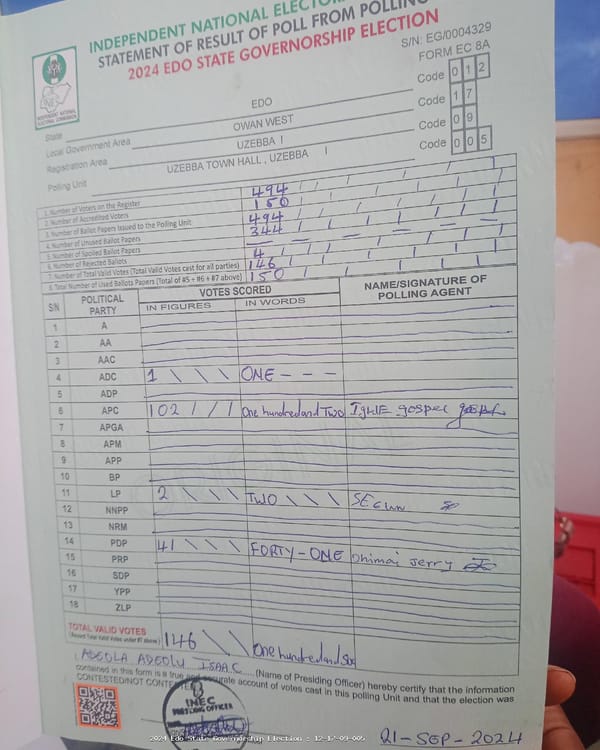 INDEPENDENT NATIONAL ELECTOR
STATEMENT OF RESULT OF POLL FROM POLLING
2024 EDO STATE GOVERNORSHIP ELECTION
S/N: EG/0004329
FORM EC 8A
INEC
INDEPENDENT NATIONAL ELECTORAL COMMISSION
State EDO Code 0 1 2
Local Government Area OWAN WEST Code 1 7
Registration Area UZEBBA I Code 0 9
Polling Unit UZEBBA TOWN HALL , UZEBBA I Code 0 0 5
1. Number of Voters on the Register 494
2. Number of Accredited Voters 150
3. Number of Ballot Papers Issued to the Polling Unit 494
4. Number of Unused Ballot Papers 344
5. Number of Spoiled Ballot Papers —
6. Number of Rejected Ballots 4
7. Number of Total Valid Votes (Total Valid Votes cast for all parties) 146
8. Total Number of Used Ballots Papers (Total of #5 + #6 + #7 above) 150
S/N POLITICAL PARTY VOTES SCORED NAME/SIGNATURE OF POLLING AGENT
IN FIGURES IN WORDS
1 A
2 AA
3 AAC
4 ADC 1 ONE - - -
5 ADP
6 APC 102 One hundred and Two gospel
7 APGA
8 APM
9 APP
10 BP
11 LP 2 TWO
12 NNPP
13 NRM
14 PDP 41 FORTY-ONE Ohimai Jerry
15 PRP
16 SDP
17 YPP
18 ZLP
TOTAL VALID VOTES 146 One hundred and
(Record Total Valid Votes under #7 above)
I, ADEOLA ADEOLU ISAAC (Name of Presiding Officer) hereby certify that the information
contained in this form is a true and accurate account of votes cast in this polling Unit and that the election was
CONTESTED/NOT CONTE
INEC
PRESIDING OFFICER
21-SEP-2024
2024 Edo State Governorship Election : 12-17-09-005